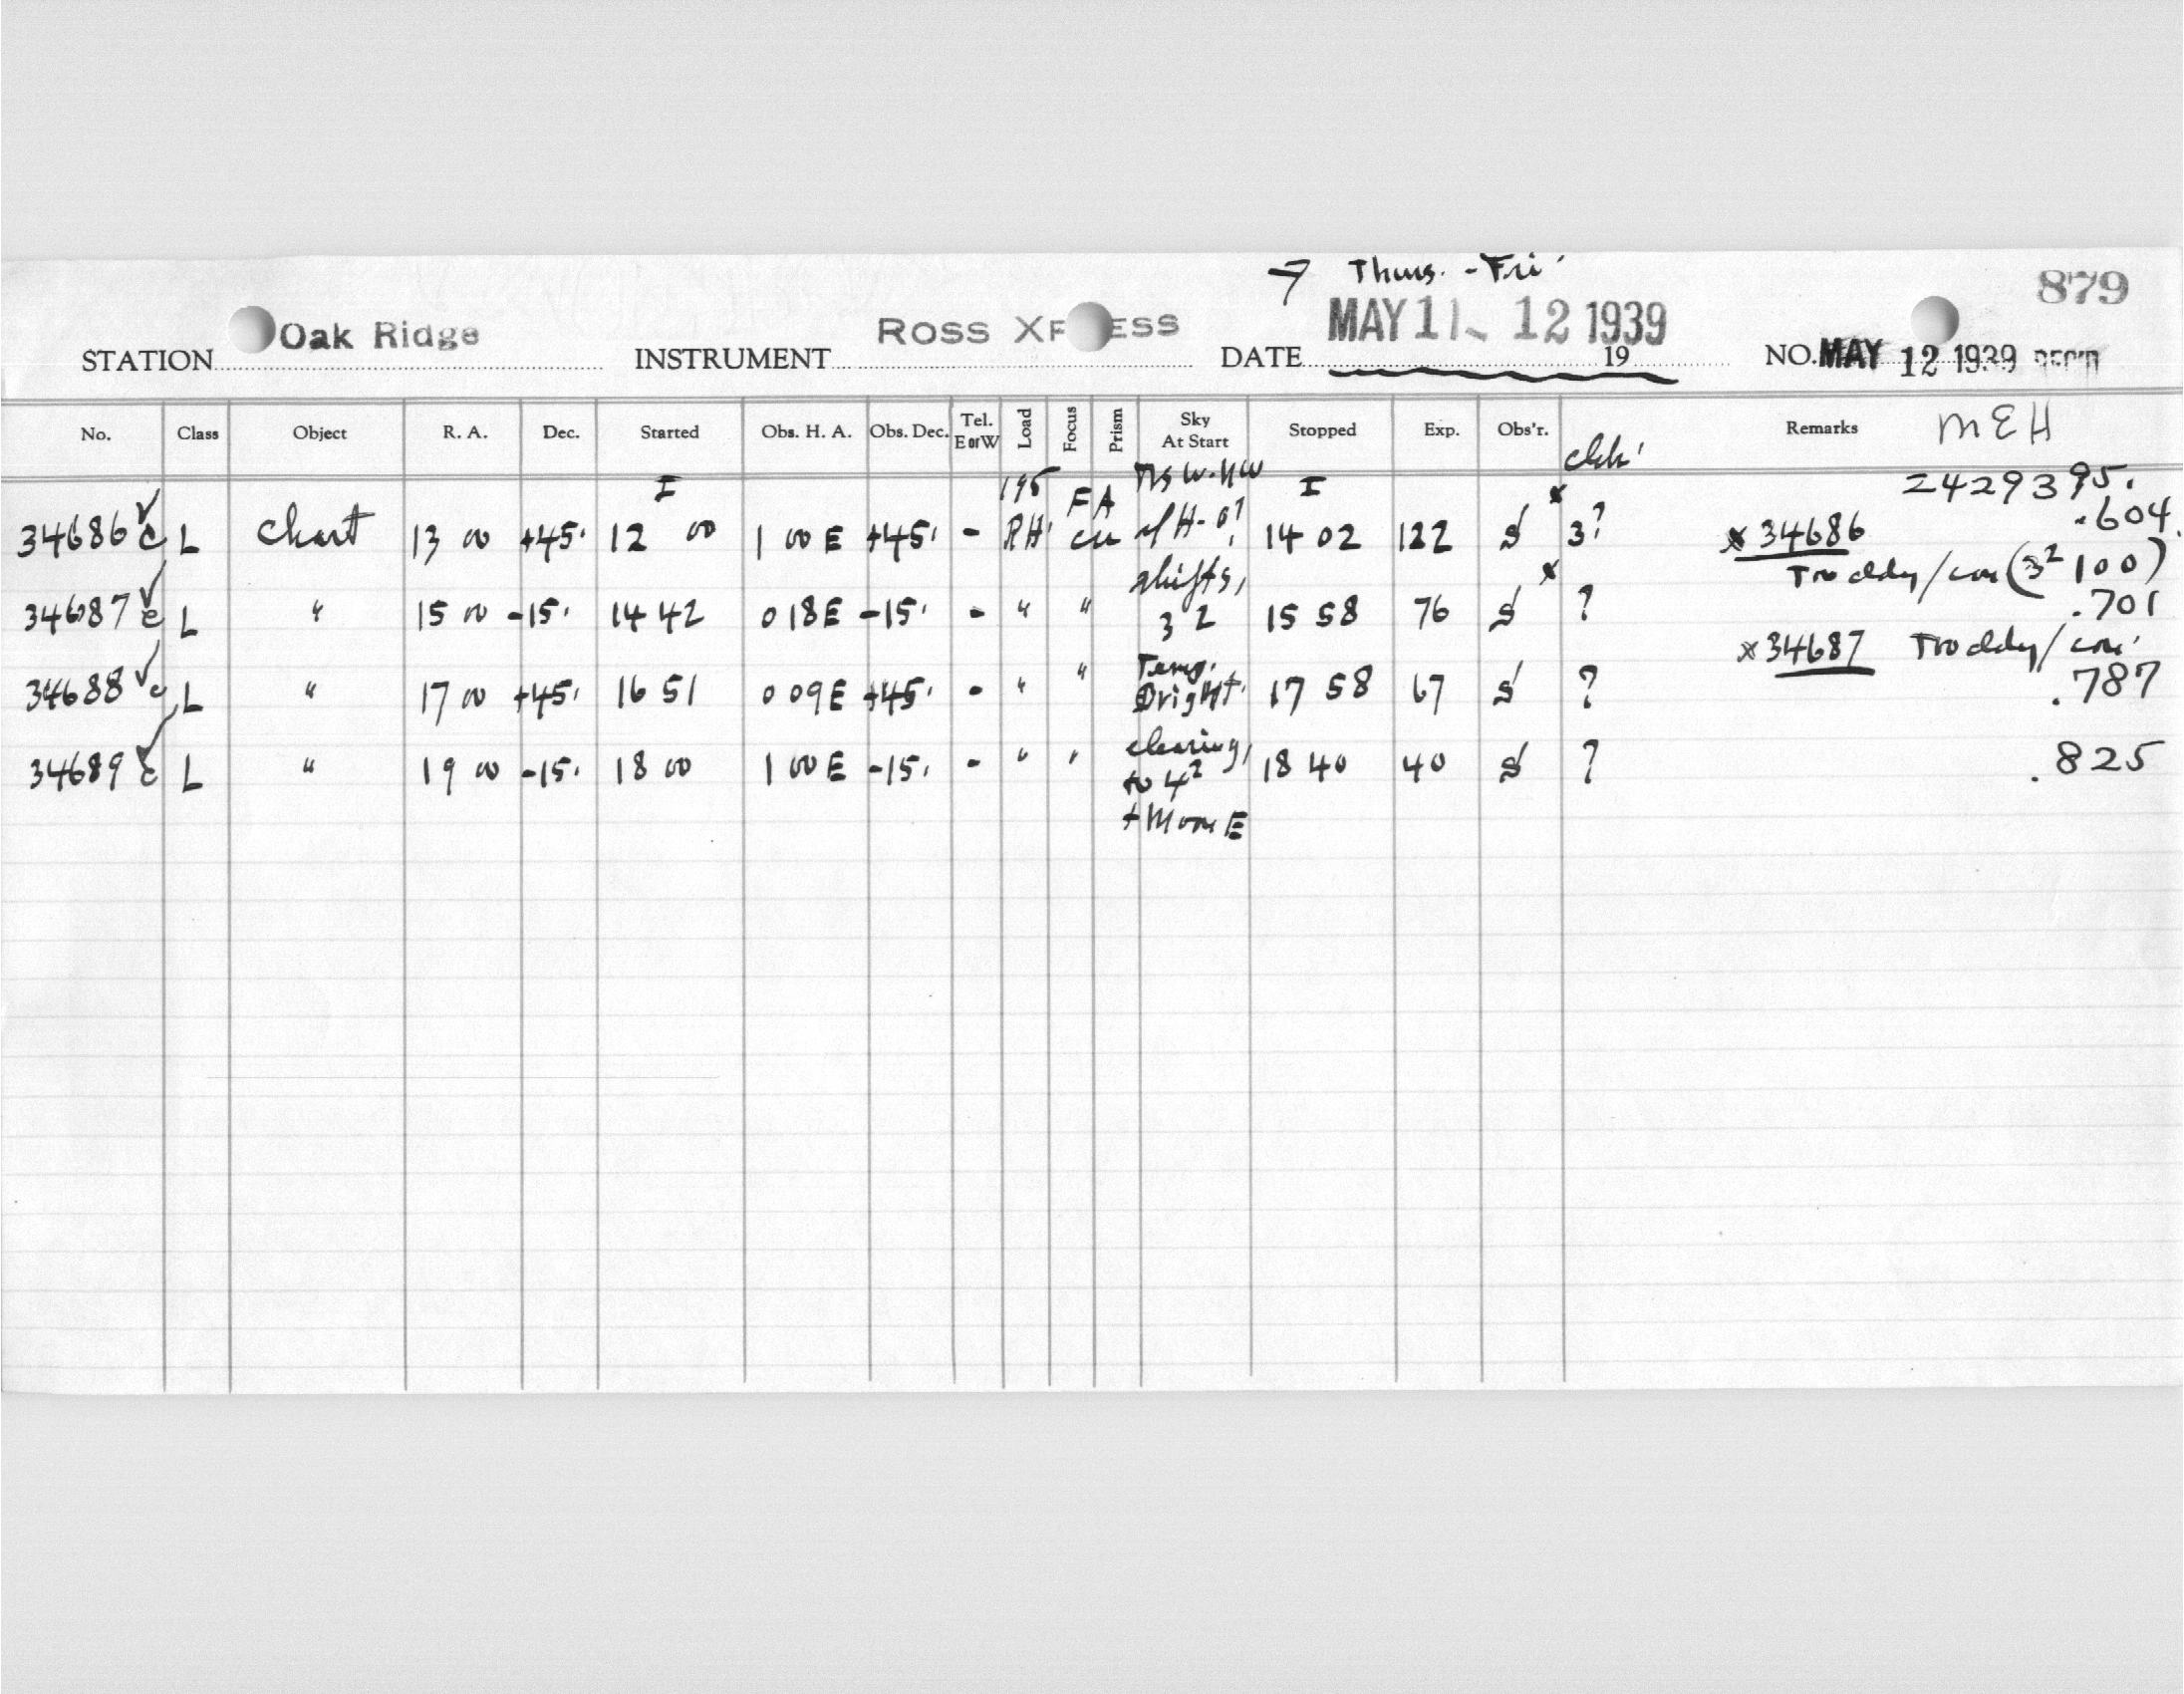 Thurs. - Fri.
879
STATION Oak Ridge INSTRUMENT ROSS XPRESS DATE MAY 11, 12 1939 19 NO. MAY 12 1939 REC'D
No. Class Object R. A. Dec. Started Obs. H. A. Obs. Dec. Tel. E or W Load Focus Prism Sky At Start Stopped Exp. Obs'r. Remarks MEH
2429395.
34686 c L Chart 13 00 +45. I 12 00 1 00 E +45. - RH. FA 14 02 I 122 S 3? x 34686 .604
(3² 100)
34687 c L " 15 00 -15. 14 42 0 18 E -15. - " " shifts, 3 2 15 58 76 S x ? .701
x 34687
34688 c L " 17 00 +45. 16 51 0 09 E +45. - " " Bright. 17 58 67 S ? .787
34689 c L " 19 00 -15. 18 00 1 00 E -15. - " " clearing, to 4² 18 40 40 S ? .825
+ Moon E